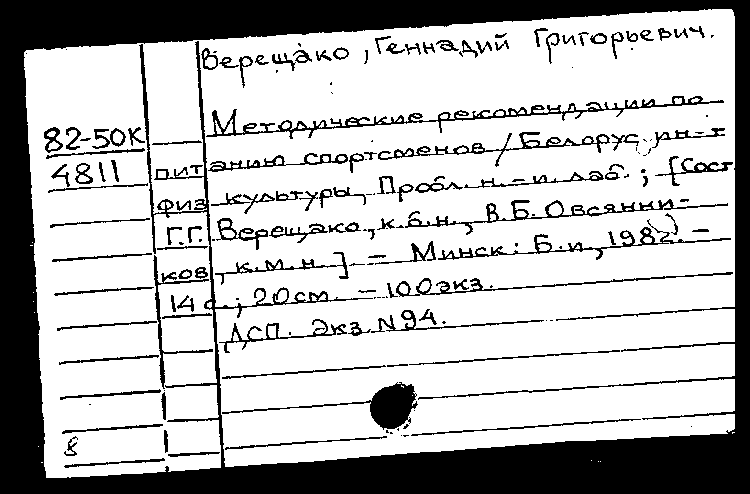 Верещако, Геннадий Григорьевич.
Методические рекомендации по
82-50К
4811
питанию спортсменов / Белорус. ин-т
физ культуры, Пробл. н.-и. лаб. ; [Сост.
Г.Г. Верещако, к.б.н., В.Б. Овсянни-
ков, к.м.н.] - Минск: Б.и., 1982. -
14 с.; 20 см. - 100 экз.
ДСП. Экз. N 94.
8